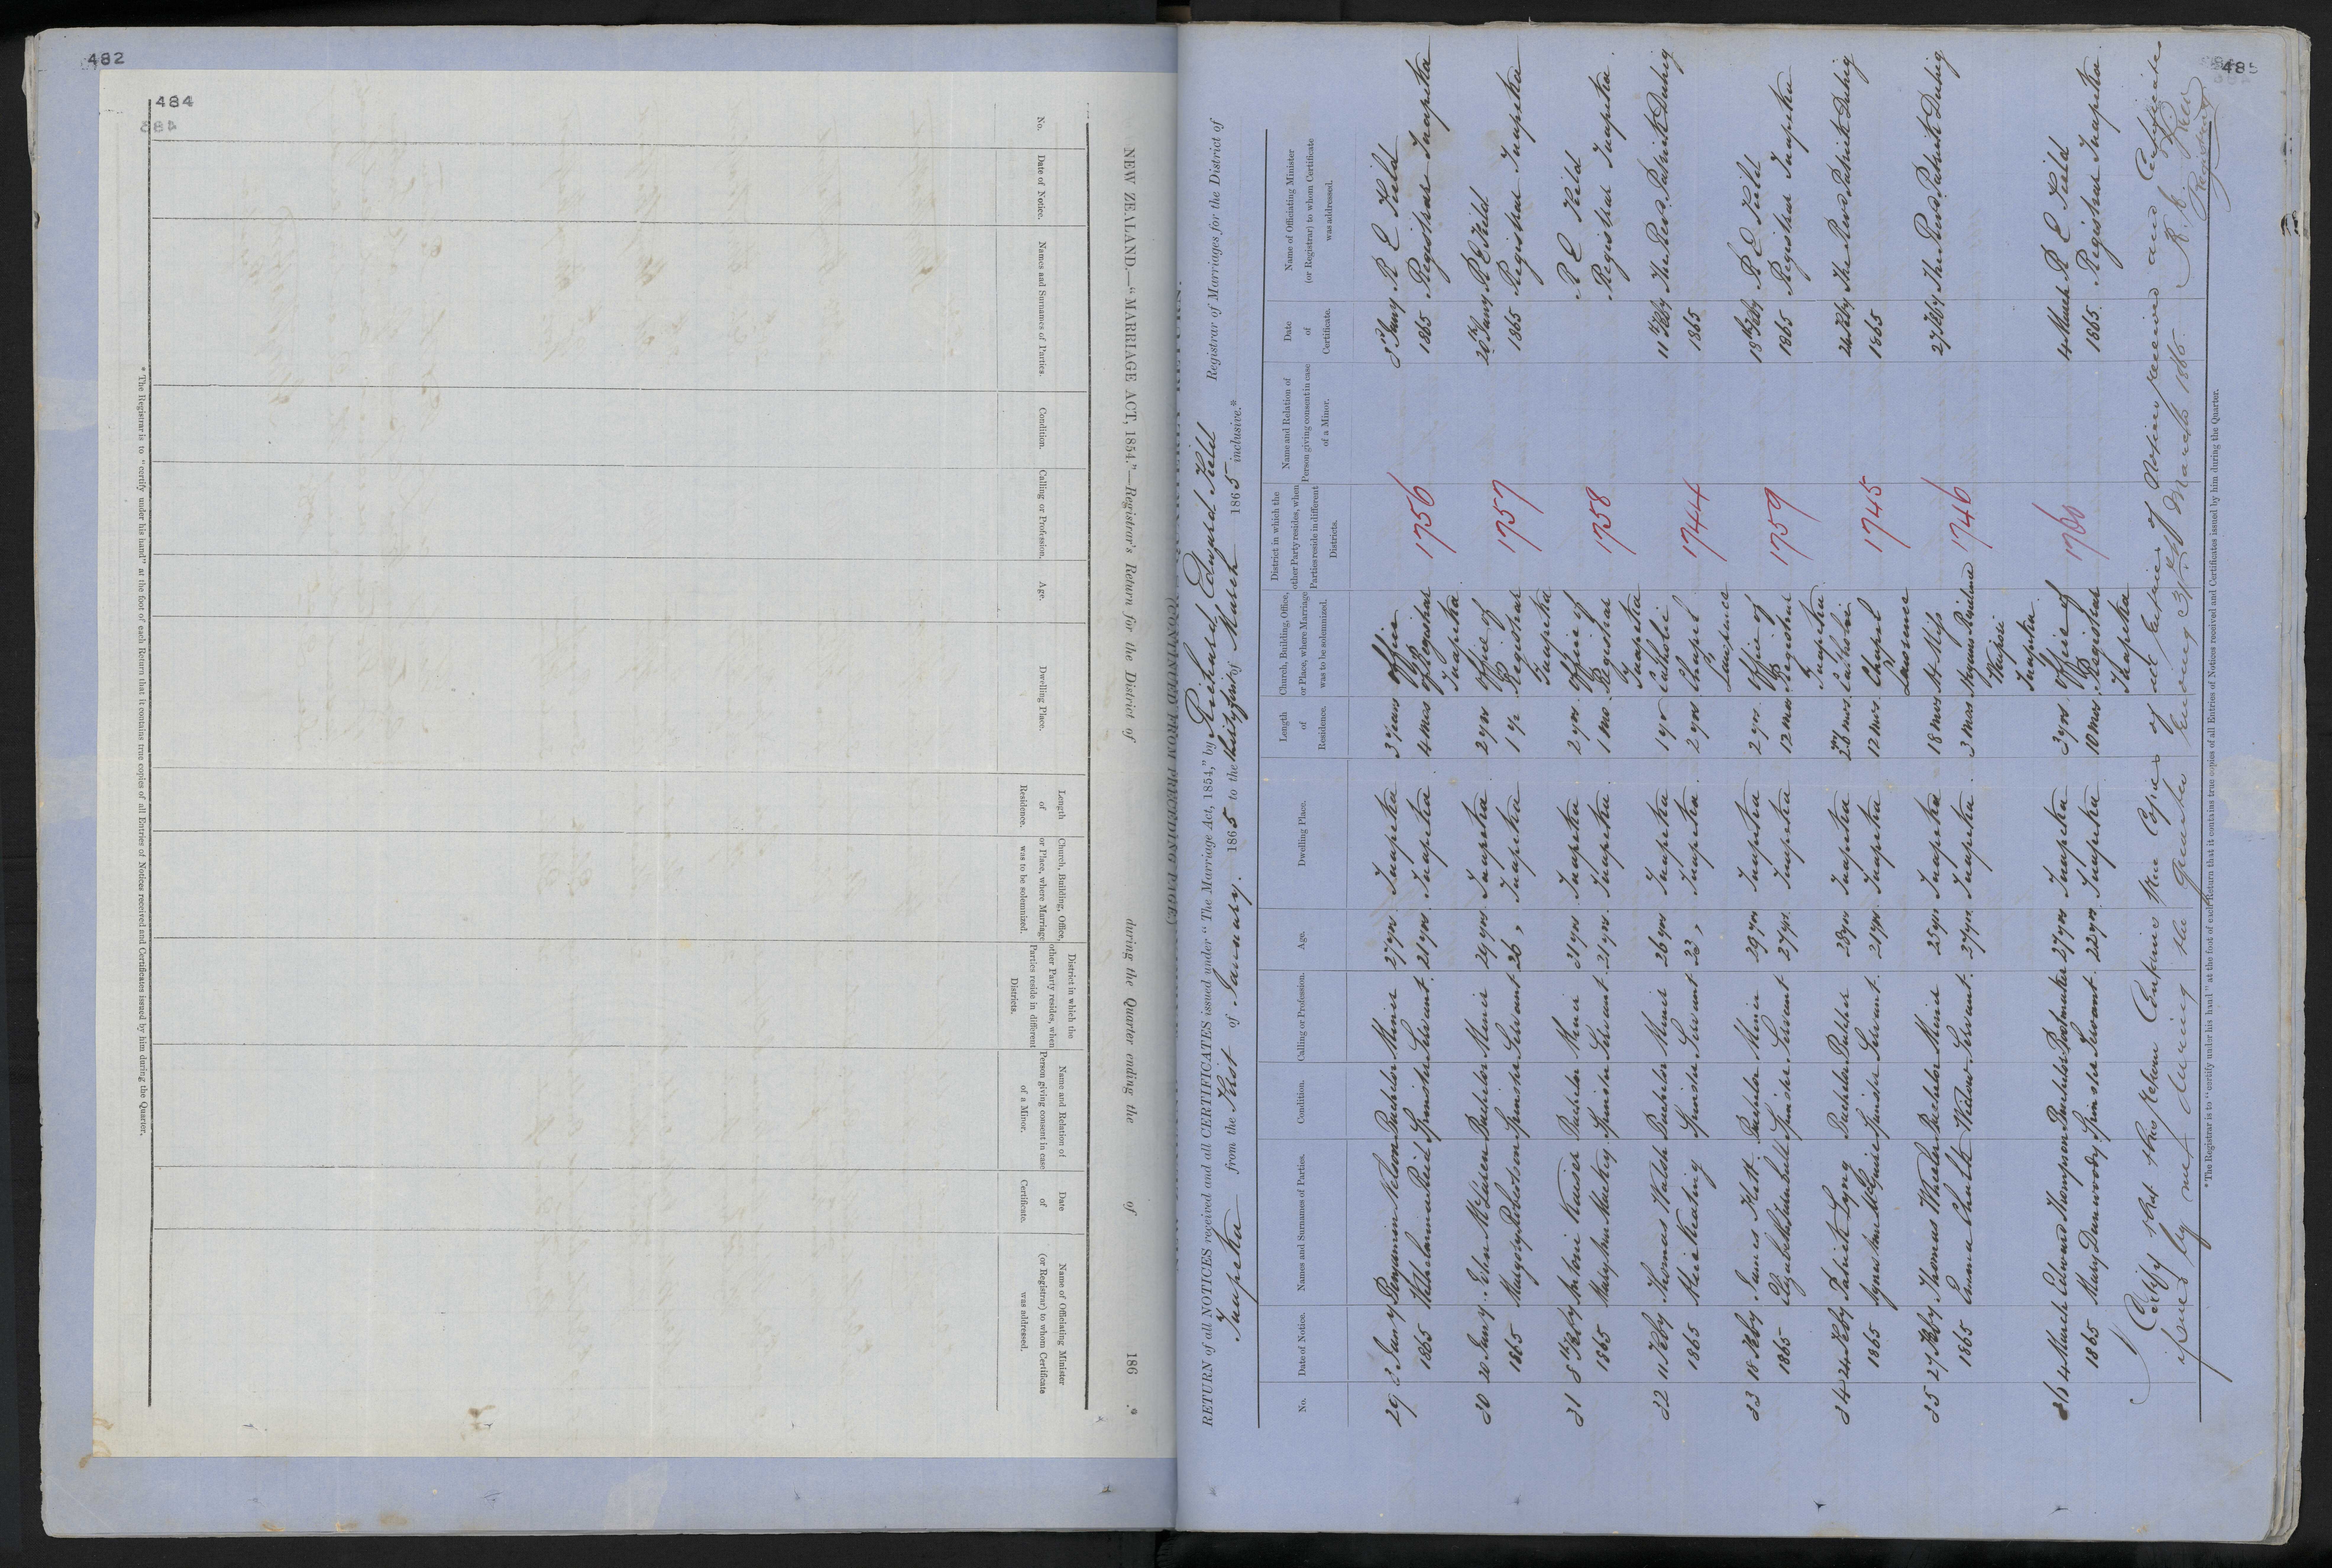 482
484
NEW ZEALAND.—"MARRIAGE ACT, 1854."—Registrar's Return for the District of during the Quarter ending the of 186 .*
No.
Date of Notice.
Names and Surnames of Parties.
Condition.
Calling or Profession.
Age.
Dwelling Place.
Length of Residence.
Church, Building, Office, or Place, where Marriage was to be solemnized.
District in which the other Party resides, when Parties reside in different Districts.
Name and Relation of Person giving consent in case of a Minor.
Date of Certificate.
Name of Officiating Minister (or Registrar) to whom Certificate was addressed.
* The Registrar is to "certify under his hand" at the foot of each Return that it contains true copies of all Entries of Notices received and Certificates issued by him during the Quarter.
485
(CONTINUED FROM PRECEDING PAGE)
RETURN of all NOTICES received and all CERTIFICATES issued under "The Marriage Act, 1854," by Richard Edward Field Registrar of Marriages for the District of
Tuapeka from the First of January 1865 to the thirty first of March 1865 inclusive.*
No. Date of Notice. Names and Surnames of Parties. Condition. Calling or Profession. Age. Dwelling Place. Length of Residence. Church, Building, Office, or Place, where Marriage was to be solemnized. District in which the other Party resides, when Parties reside in different Districts. Name and Relation of Person giving consent in case of a Minor. Date of Certificate. Name of Officiating Minister (or Registrar) to whom Certificate was addressed.
29 3 Jany Benjamin Nelson Bachelor Miner 27 yrs Tuapeka 3 years office 1756 3rd Jany R E Field
1865 Reid Spinster Servant 21 yrs Tuapeka 4 mos of Registrar Tuapeka 1865 Registrar Tuapeka
30 20 Jany John McLaren Bachelor Miner 29 yrs Tuapeka 2 yrs office of 1757 20th Jany R E Field
1865 Margary Robertson Spinster Servant 26 " Tuapeka 1 1/2 Registrar Tuapeka 1865 Registrar Tuapeka
31 8th Feby Antoni Kaiser Bachelor Miner 31 yrs Tuapeka 2 yrs office of 1758 R E Field
1865 Mary Ann Mackey Spinster Servant 21 yrs Tuapeka 1 mo Registrar Tuapeka Registrar Tuapeka
32 11 Feby Thomas Walsh Bachelor Miner 26 yrs Tuapeka 1 yr Catholic 1744 11th Feby The Revd Patrick Duhig
1865 Keating Spinster Servant 23 " Tuapeka 2 yrs Chapel Lawrence 1865
33 18 Feby James Batchelor Miner 29 yrs Tuapeka 2 yrs office of 1759 18th Feby R E Field
1865 Elizabeth Turnbull Spinster Servant 27 yrs Tuapeka 12 mos Registrar Tuapeka 1865 Registrar Tuapeka
34 24 Feby Patrick Lyng Bachelor Butcher 28 yrs Tuapeka Catholic 1745 24 Feby The Revd Patrick Duhig
1865 Agnes McGuire Spinster Servant 21 yrs Tuapeka 12 mos Chapel Lawrence 1865
35 27 Feby Thomas Whelan Bachelor Miner 25 yrs Tuapeka 18 mos At 1746 27 Feby The Revd Patrick Duhig
1865 Emma Widow Servant 27 yrs Tuapeka 3 mos Residence Tuapeka
36 4 March Edward Thompson Bachelor Bootmaker 27 yrs Tuapeka 3 yrs office of 1760 4 March R E Field
1865 Mary Dunwoody Spinster Servant 22 yrs Tuapeka 10 mos Registrar Tuapeka 1865 Registrar Tuapeka
I Certify that this Return Contains true Copies of all Entries of Notices received and Certificates
issued by me during the Quarter ending 31st March 1865.
R. E. Field
Registrar
* The Registrar is to "certify under his hand" at the foot of each Return that it contains true copies of all Entries of Notices received and Certificates issued by him during the Quarter.